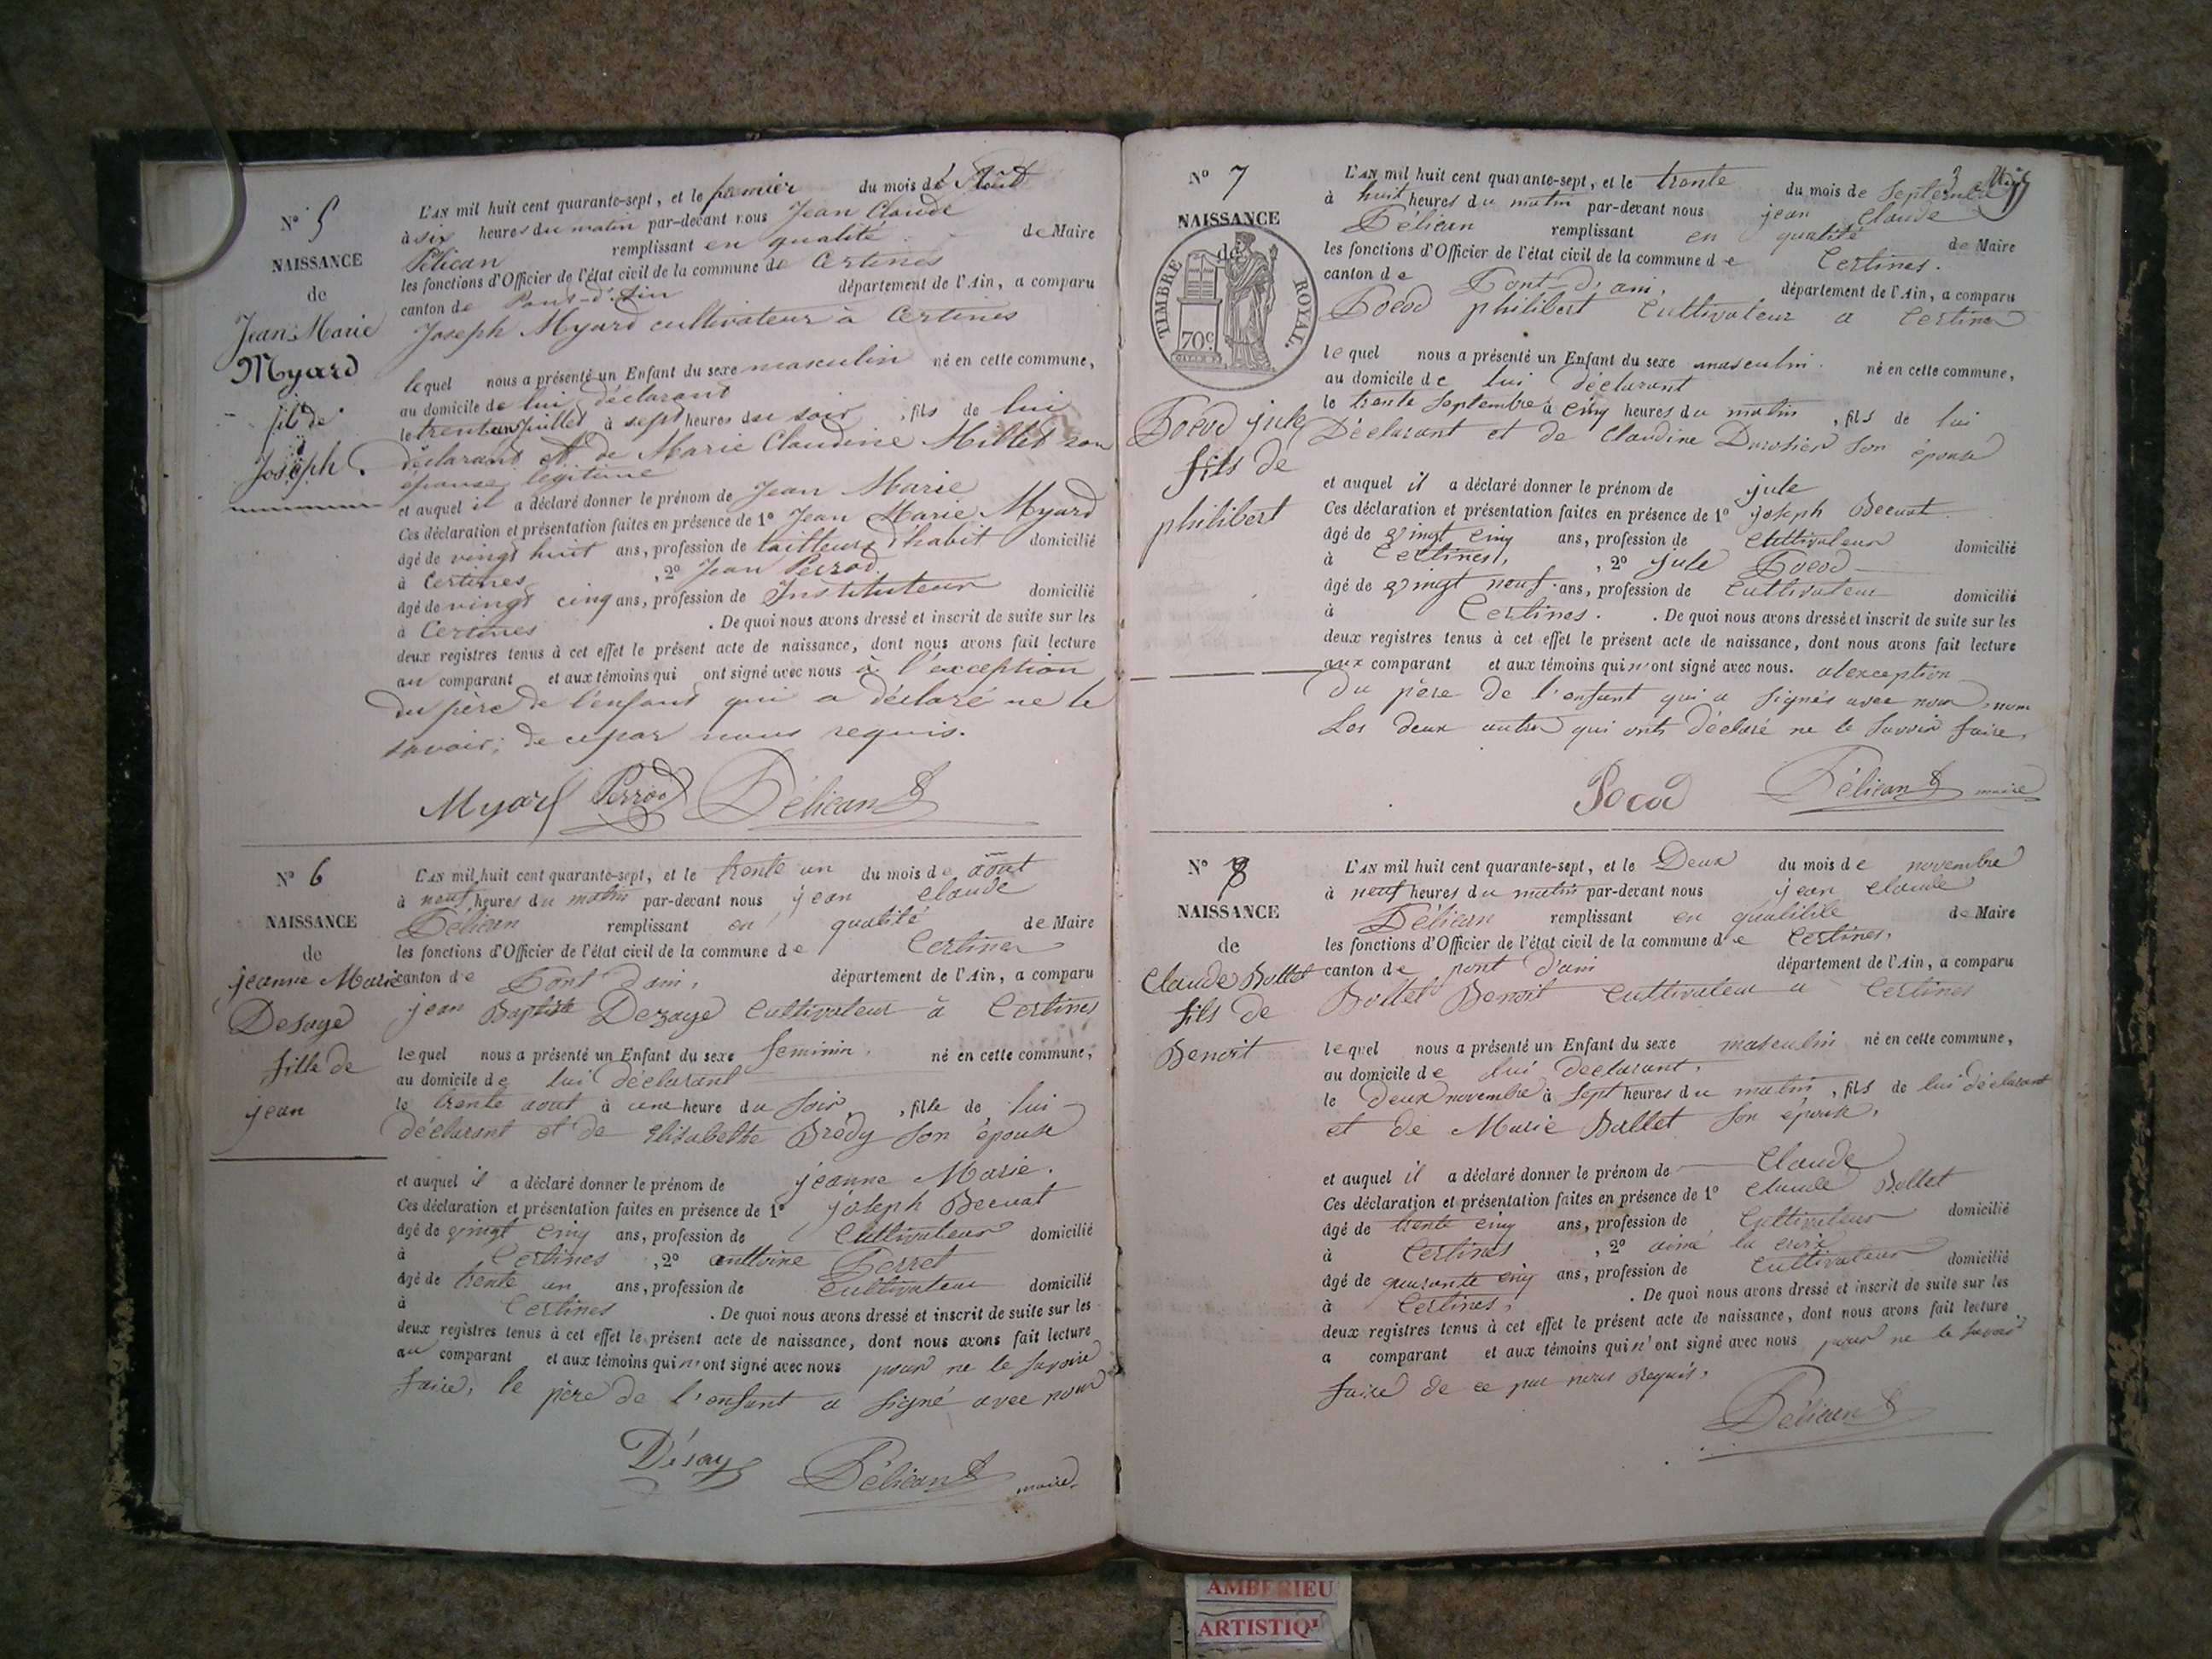 N° 5
NAISSANCE
de
Jean Marie
Myard
fils de
Joseph.
L'AN mil huit cent quarante-sept, et le premier du mois de Août
à six heures du matin par-devant nous Jean Claude
Pélican remplissant en qualité de Maire
les fonctions d'Officier de l'état civil de la commune de Certines
canton de Pont-d'Ain département de l'Ain, a comparu
Joseph Myard cultivateur à Certines
lequel nous a présenté un Enfant du sexe masculin né en cette commune,
au domicile de lui déclarant
le trente un juillet à sept heures du soir, fils de lui
déclarant et de Marie Claudine Millet son
épouse légitime
et auquel il a déclaré donner le prénom de Jean Marie
Ces déclaration et présentation faites en présence de 1° Jean Marie Myard
âgé de vingt huit ans, profession de tailleur d'habit domicilié
à Certines, 2° Jean Perrod
âgé de vingt cinq ans, profession de Instituteur domicilié
à Certines. De quoi nous avons dressé et inscrit de suite sur les
deux registres tenus à cet effet le présent acte de naissance, dont nous avons fait lecture
au comparant et aux témoins qui ont signé avec nous à l'exception
du père de l'enfant qui a déclaré ne le
savoir; de ce par nous requis.
Myard Perrod Pélican
N° 6
NAISSANCE
de
jeanne Marie
Desaye
fille de
jean
L'AN mil huit cent quarante-sept, et le trente un du mois de août
à neuf heures du matin par-devant nous jean claude
Pélican remplissant en qualité de Maire
les fonctions d'Officier de l'état civil de la commune de Certines
canton de Pont d'ain, département de l'Ain, a comparu
jean Baptiste Dezaye Cultivateur à Certines
lequel nous a présenté un Enfant du sexe feminin. né en cette commune,
au domicile de lui déclarant
le trente aout à une heure du soir, fille de lui
déclarant et de Elisabethe Brody son épouse
et auquel il a déclaré donner le prénom de jeanne Marie.
Ces déclaration et présentation faites en présence de 1° joseph Becuat
âgé de vingt cinq ans, profession de Cultivateur domicilié
à Certines, 2° anttoine Perret
âgé de trente un ans, profession de Cultivateur domicilié
à Certines. De quoi nous avons dressé et inscrit de suite sur les
deux registres tenus à cet effet le présent acte de naissance, dont nous avons fait lecture
au comparant et aux témoins qui n'ont signé avec nous pour ne le savoir
faire, le père de l'enfant a signé avec nous
Désay Pélican maire
N° 7
NAISSANCE
de
TIMBRE ROYAL
70c.
Pocod jule
fils de
philibert
3
L'AN mil huit cent quarante-sept, et le trente du mois de septembre
à huit heures du matin par-devant nous jean Claude
Pélican remplissant en qualité de Maire
les fonctions d'Officier de l'état civil de la commune de Certines.
canton de Pont-d'ain, département de l'Ain, a comparu
Pocod philibert Cultivateur a Certines
lequel nous a présenté un Enfant du sexe masculin. né en cette commune,
au domicile de lui déclarant
le trente septembre à cinq heures du matin, fils de lui
Déclarant et de Claudine Durochier son épouse
et auquel il a déclaré donner le prénom de jule
Ces déclaration et présentation faites en présence de 1° joseph Becuat
âgé de vingt cinq ans, profession de Cultivateur domicilié
à Certines, 2° jule Pocod
âgé de vingt neuf ans, profession de Cultivateur domicilié
à Certines. De quoi nous avons dressé et inscrit de suite sur les
deux registres tenus à cet effet le présent acte de naissance, dont nous avons fait lecture
aux comparant et aux témoins qui n'ont signé avec nous. alexception
du père de l'enfant qui a signés avec nous, non
Les deux autres qui onts déclaré ne le savoir faire,
Pocod Pélican maire
N° 8
NAISSANCE
de
Claude Bollet
fils de
Benoit
L'AN mil huit cent quarante-sept, et le Deux du mois de novembre
à neuf heures du matin par-devant nous jean claude
Pélican remplissant en qualitile de Maire
les fonctions d'Officier de l'état civil de la commune de Certines,
canton de pont d'ain département de l'Ain, a comparu
Bollet Benoit Cultivateur a Certines
lequel nous a présenté un Enfant du sexe masculin né en cette commune,
au domicile de lui Declarant,
le Deux novembre à sept heures du matin, fils de lui déclarant
et de Marie Ballet son épouse,
et auquel il a déclaré donner le prénom de Claude
Ces déclaration et présentation faites en présence de 1° claude Bollet
âgé de trente cinq ans, profession de Cultivateur domicilié
à Certines, 2° aimé la croix
âgé de quarante cinq ans, profession de Cultivateur domicilié
à Certines,. De quoi nous avons dressé et inscrit de suite sur les
deux registres tenus à cet effet le présent acte de naissance, dont nous avons fait lecture
a comparant et aux témoins qui n'ont signé avec nous pour ne le savoir
faire de ce par nous Requis,
Pélican
AMBERIEU
ARTISTIQ